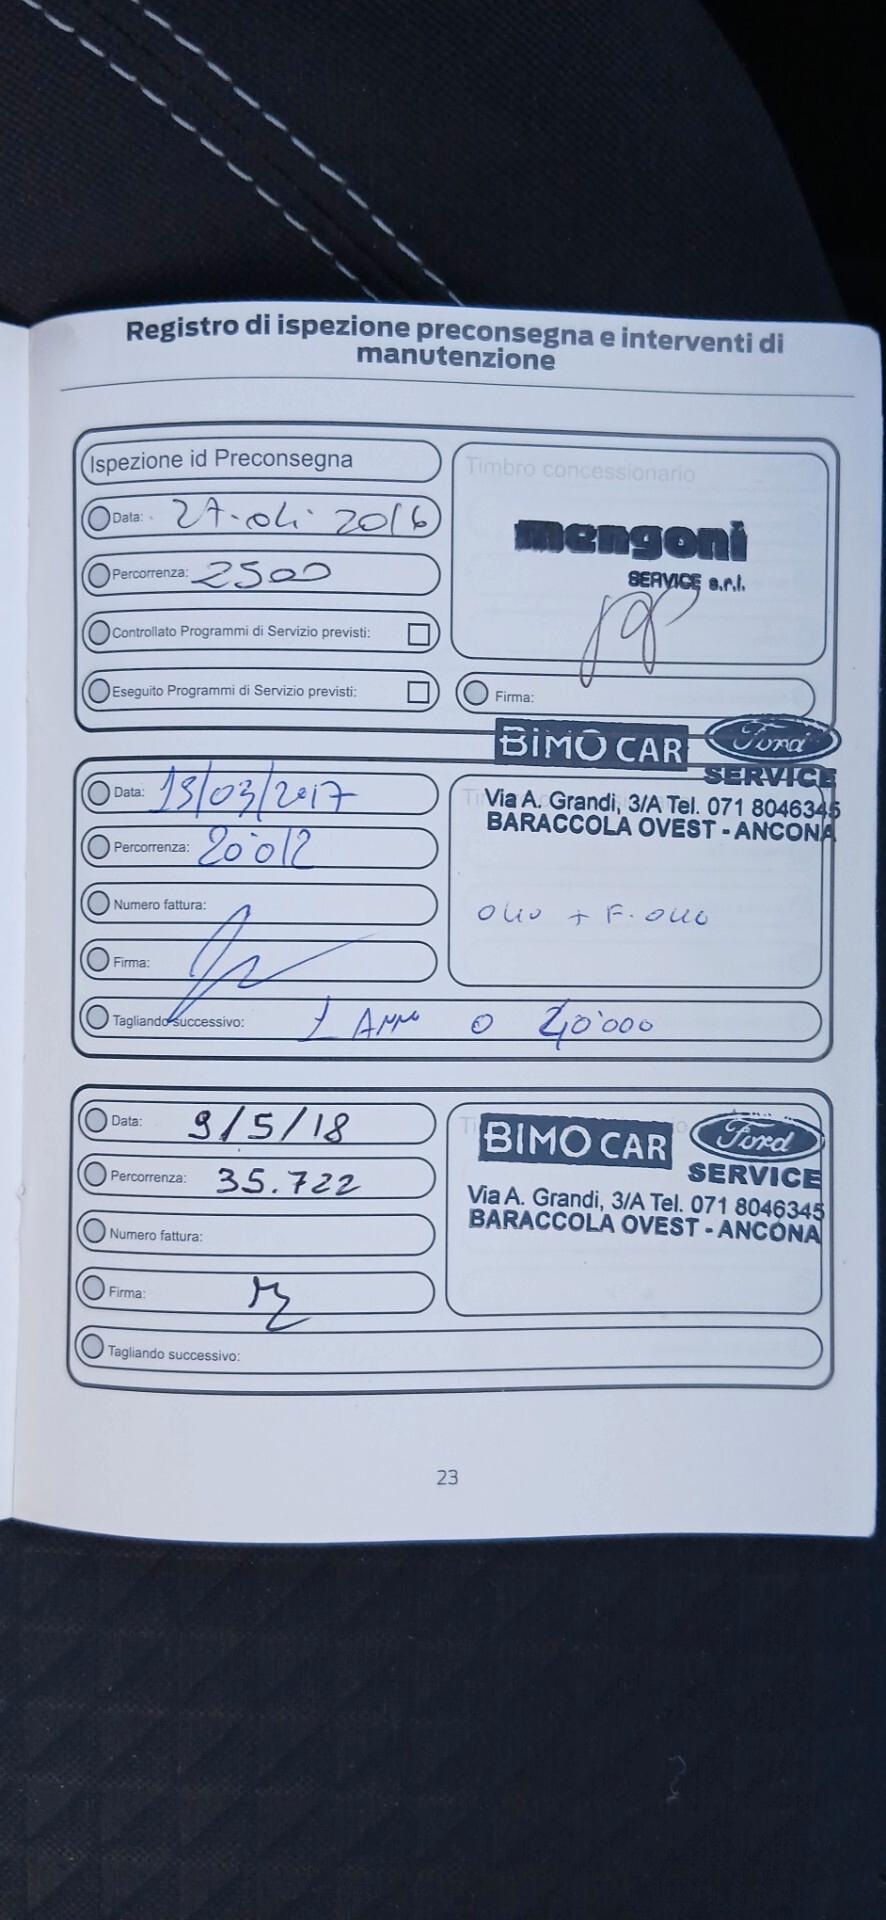 Registro di ispezione preconsegna e interventi di
manutenzione
Ispezione id Preconsegna
Timbro concessionario
Data: 27-04-2016
mengoni
SERVICE s.r.l.
Percorrenza: 2500
Controllato Programmi di Servizio previsti:
Eseguito Programmi di Servizio previsti:
Firma:
BIMO CAR Ford
SERVICE
Data: 13/03/2017
Via A. Grandi, 3/A Tel. 071 8046345
BARACCOLA OVEST - ANCONA
Percorrenza: 20'012
Numero fattura:
OLIO + F. OLIO
Firma:
Tagliando successivo: 1 ANNO O 40'000
Data: 9/5/18
BIMO CAR Ford
SERVICE
Percorrenza: 35.722
Via A. Grandi, 3/A Tel. 071 8046345
BARACCOLA OVEST - ANCONA
Numero fattura:
Firma:
Tagliando successivo:
23